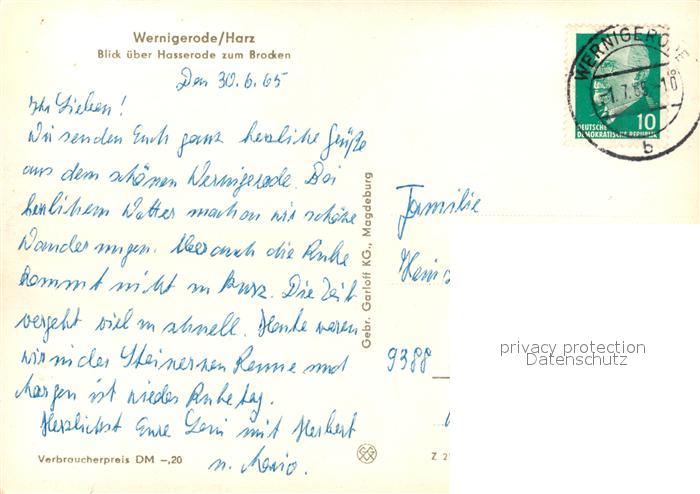 Wernigerode/Harz
Blick über Hasserode zum Brocken
Den 30.6.65
Ihr Lieben!
Wir senden Euch ganz herzliche Grüße
aus dem schönen Wernigerode. Bei
herrlichem Wetter machen wir schöne
Wanderungen. Aber auch die Ruhe
kommt nicht zu kurz. Die Zeit
vergeht viel zu schnell. Heute waren
wir in der Steinernen Renne und
Morgen ist wieder Ruhetag.
Herzlichst Eure mit Herbert
u. Mario.
Verbraucherpreis DM –,20
Gebr. Garloff KG., Magdeburg
WERNIGERODE
1.7.65
b
10
DEUTSCHE
DEMOKRATISCHE REPUBLIK
Familie
9388
Z 2
privacy protection
Datenschutz